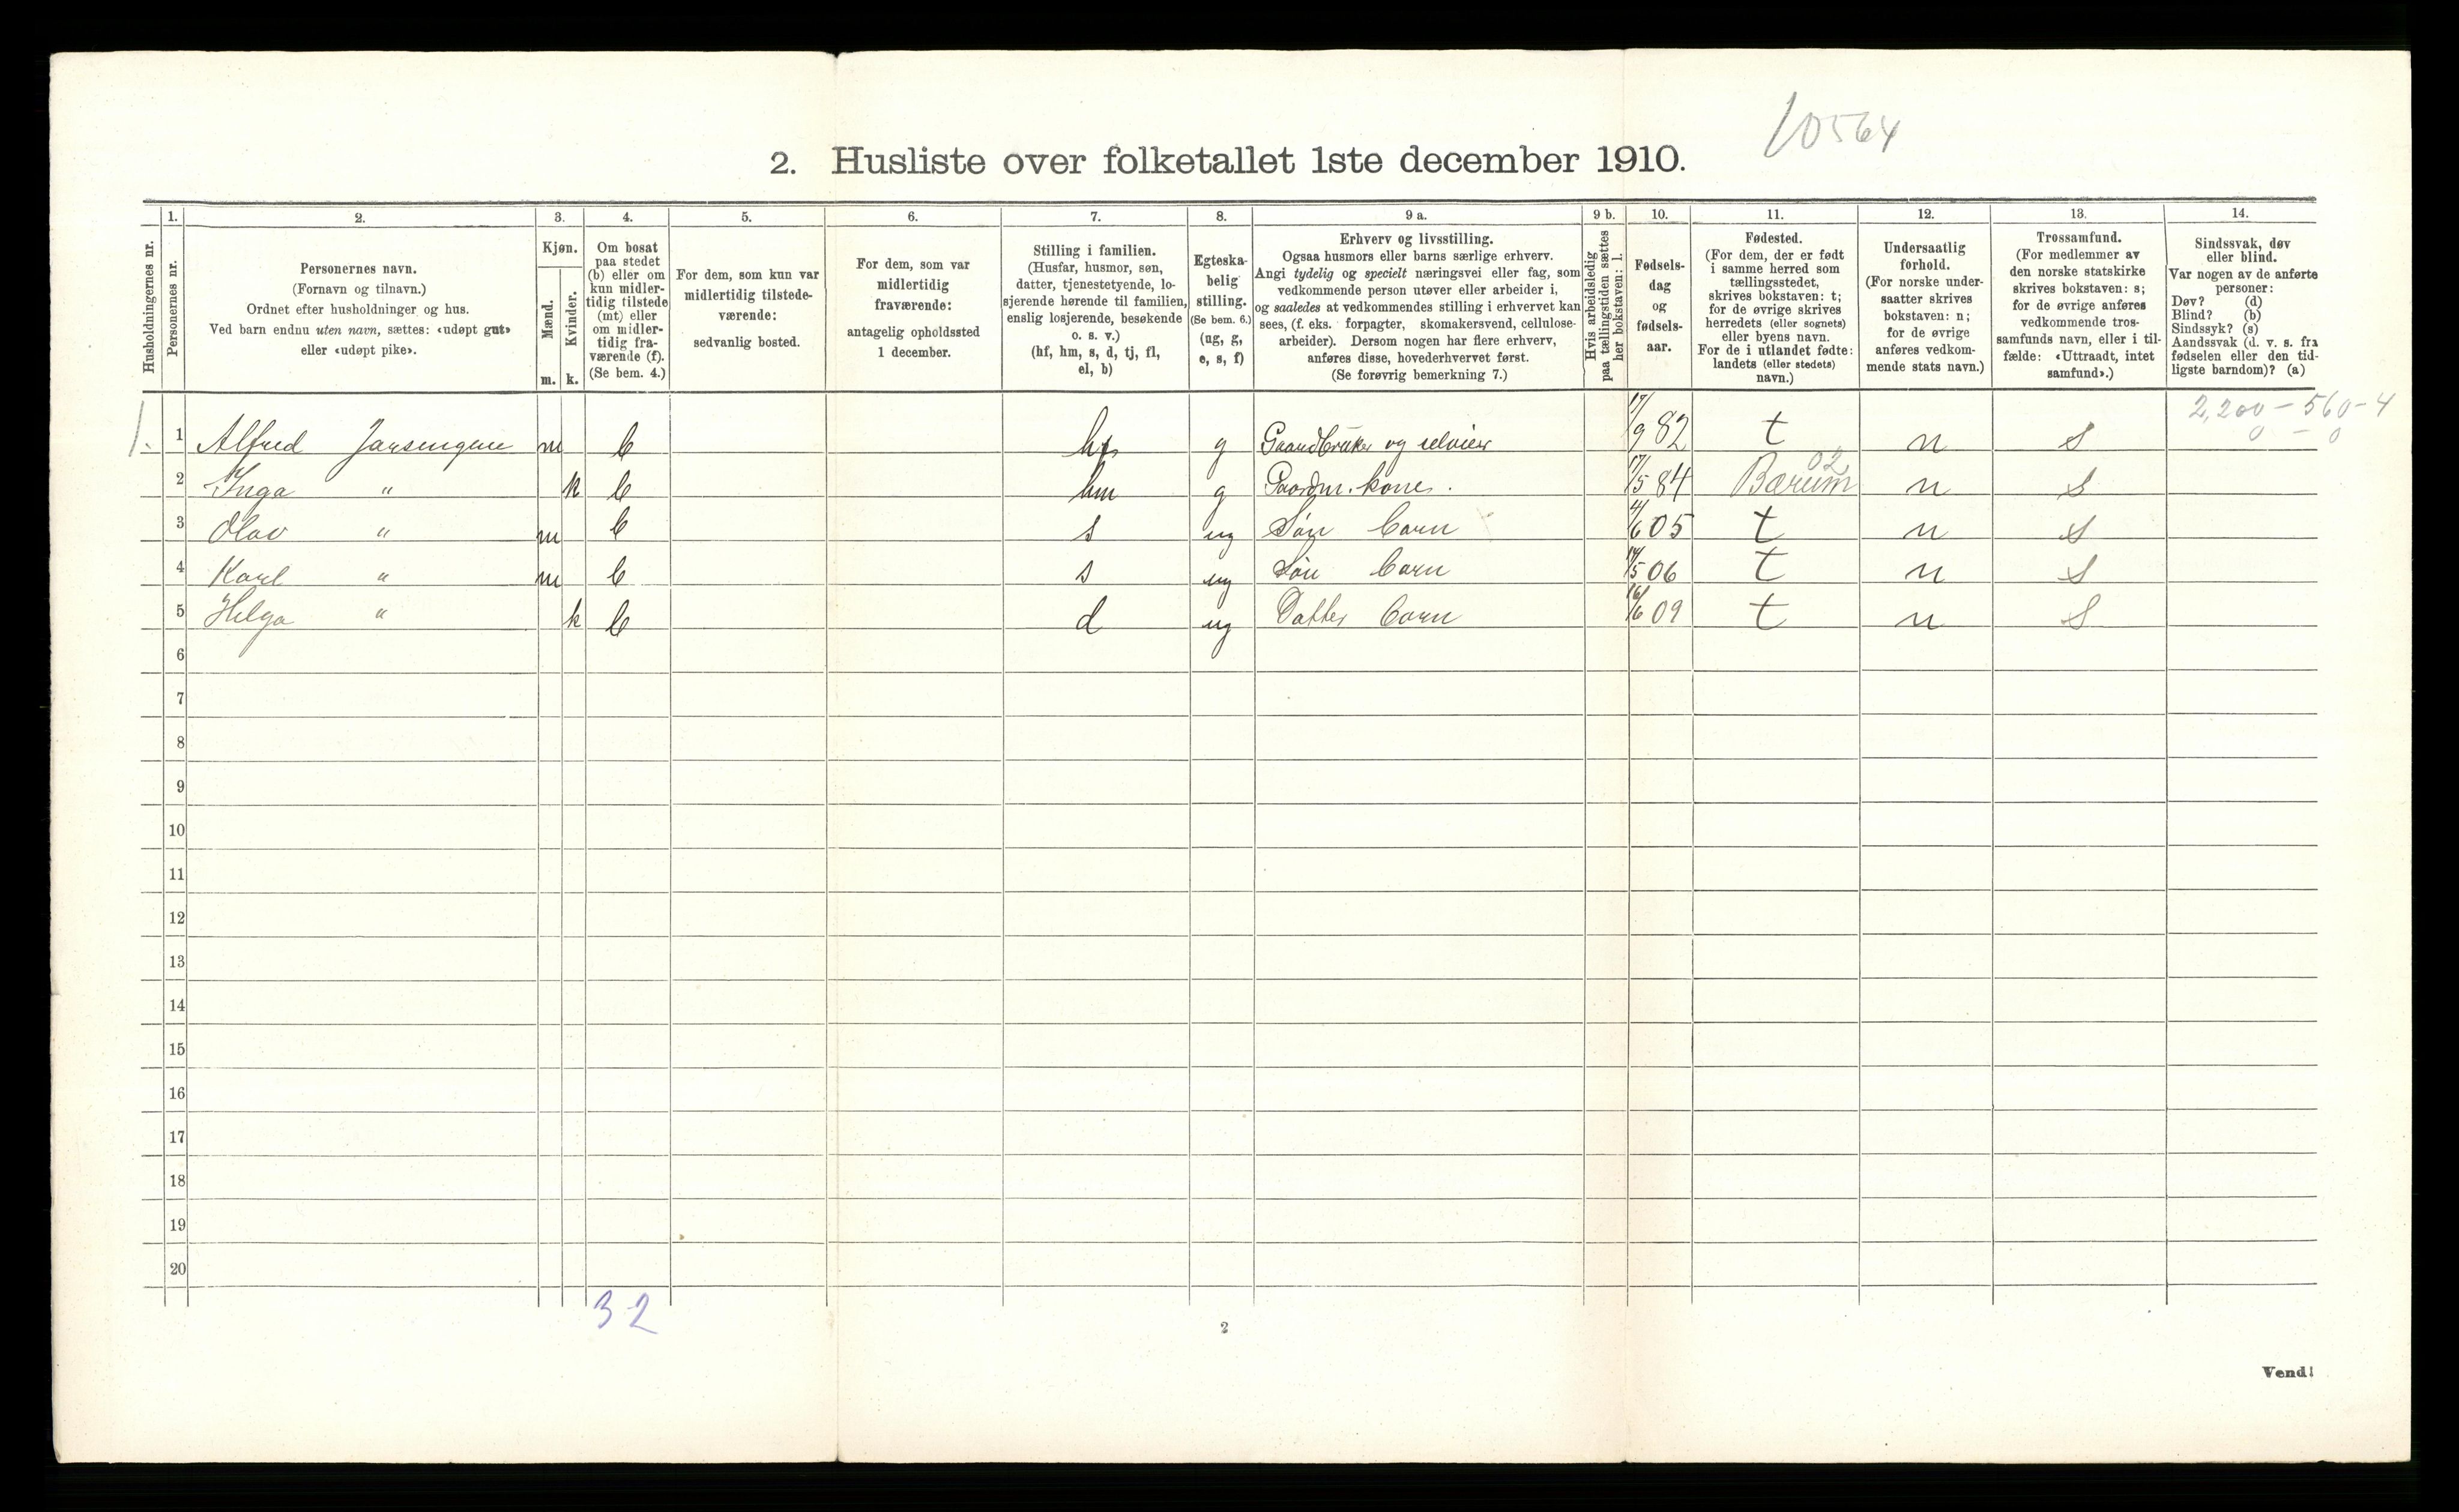 10564
2. Husliste over folketallet 1ste december 1910.
1. 2. 3. 4. 5. 6. 7. 8. 9 a. 9 b. 10. 11. 12. 13. 14.
Husholdningernes nr.
Personernes nr.
Personernes navn.
(Fornavn og tilnavn.)
Ordnet efter husholdninger og hus.
Ved barn endnu uten navn, sættes: «udøpt gut»
eller «udøpt pike».
Kjøn.
Mænd.
m.
Kvinder.
k.
Om bosat
paa stedet
(b) eller om
kun midler-
tidig tilstede
(mt) eller
om midler-
tidig fra-
værende (f).
(Se bem. 4.)
For dem, som kun var
midlertidig tilstede-
værende:
sedvanlig bosted.
For dem, som var
midlertidig
fraværende:
antagelig opholdssted
1 december.
Stilling i familien.
(Husfar, husmor, søn,
datter, tjenestetyende, lo-
sjerende hørende til familien,
enslig losjerende, besøkende
o. s. v.)
(hf, hm, s, d, tj, fl,
el, b)
Egteska-
belig
stilling.
(Se bem. 6.)
(ug, g,
e, s, f)
Erhverv og livsstilling.
Ogsaa husmors eller barns særlige erhverv.
Angi tydelig og specielt næringsvei eller fag, som
vedkommende person utøver eller arbeider i,
og saaledes at vedkommendes stilling i erhvervet kan
sees, (f. eks. forpagter, skomakersvend, cellulose-
arbeider). Dersom nogen har flere erhverv,
anføres disse, hovederhvervet først.
(Se forøvrig bemerkning 7.)
Hvis arbeidsledig
paa tællingstiden sættes
her bokstaven: l.
Fødsels-
dag
og
fødsels-
aar.
Fødested.
(For dem, der er født
i samme herred som
tællingsstedet,
skrives bokstaven: t;
for de øvrige skrives
herredets (eller sognets)
eller byens navn.
For de i utlandet fødte:
landets (eller stedets)
navn.)
Undersaatlig
forhold.
(For norske under-
saatter skrives
bokstaven: n;
for de øvrige
anføres vedkom-
mende stats navn.)
Trossamfund.
(For medlemmer av
den norske statskirke
skrives bokstaven: s;
for de øvrige anføres
vedkommende tros-
samfunds navn, eller i til-
fælde: «Uttraadt, intet
samfund».)
Sindssvak, døv
eller blind.
Var nogen av de anførte
personer:
Døv? (d)
Blind? (b)
Sindssyk? (s)
Aandssvak (d. v. s. fra
fødselen eller den tid-
ligste barndom)? (a)
2,200 - 560 - 4
0 - 0
1. 1 Alfred m b hf g Gaardbruker og 17/9 82 t n s
2 Inga " k b hm g Gaardm. kone. 17/5 84 Bærum 02 n s
3 Olav " m b s ug Søn barn 4/6 05 t n s
4 Karl " m b s ug Søn barn 14/5 06 t n s
5 Helga " k b d ug Datter barn 16/6 09 t n s
6
7
8
9
10
11
12
13
14
15
16
17
18
19
20
3 2
2
Vend!